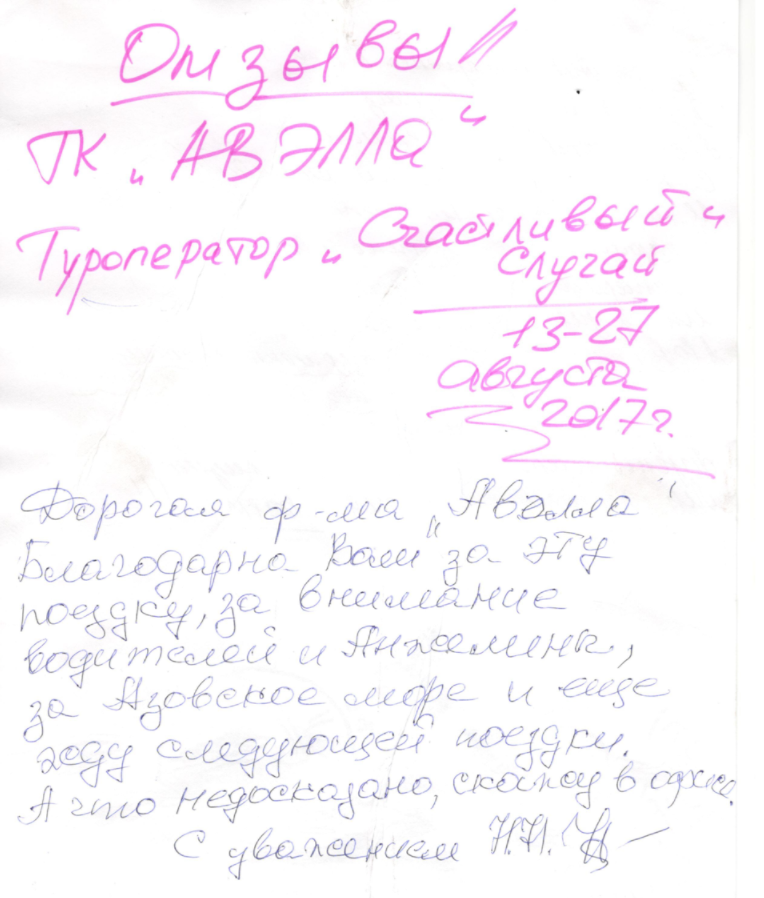 Отзывы
ТК „АВЭЛЛА"
Туроператор „Счастливый"
Случай
13-27
августа
2017г.
Дорогая ф-ма „Авэлла"
Благодарна Вам за эту
поездку, за внимание
водителей и Анжелины,
за Азовское море и еще
жду следующей поездки.
А что недосказано, скажу в
С уважением Н.И.